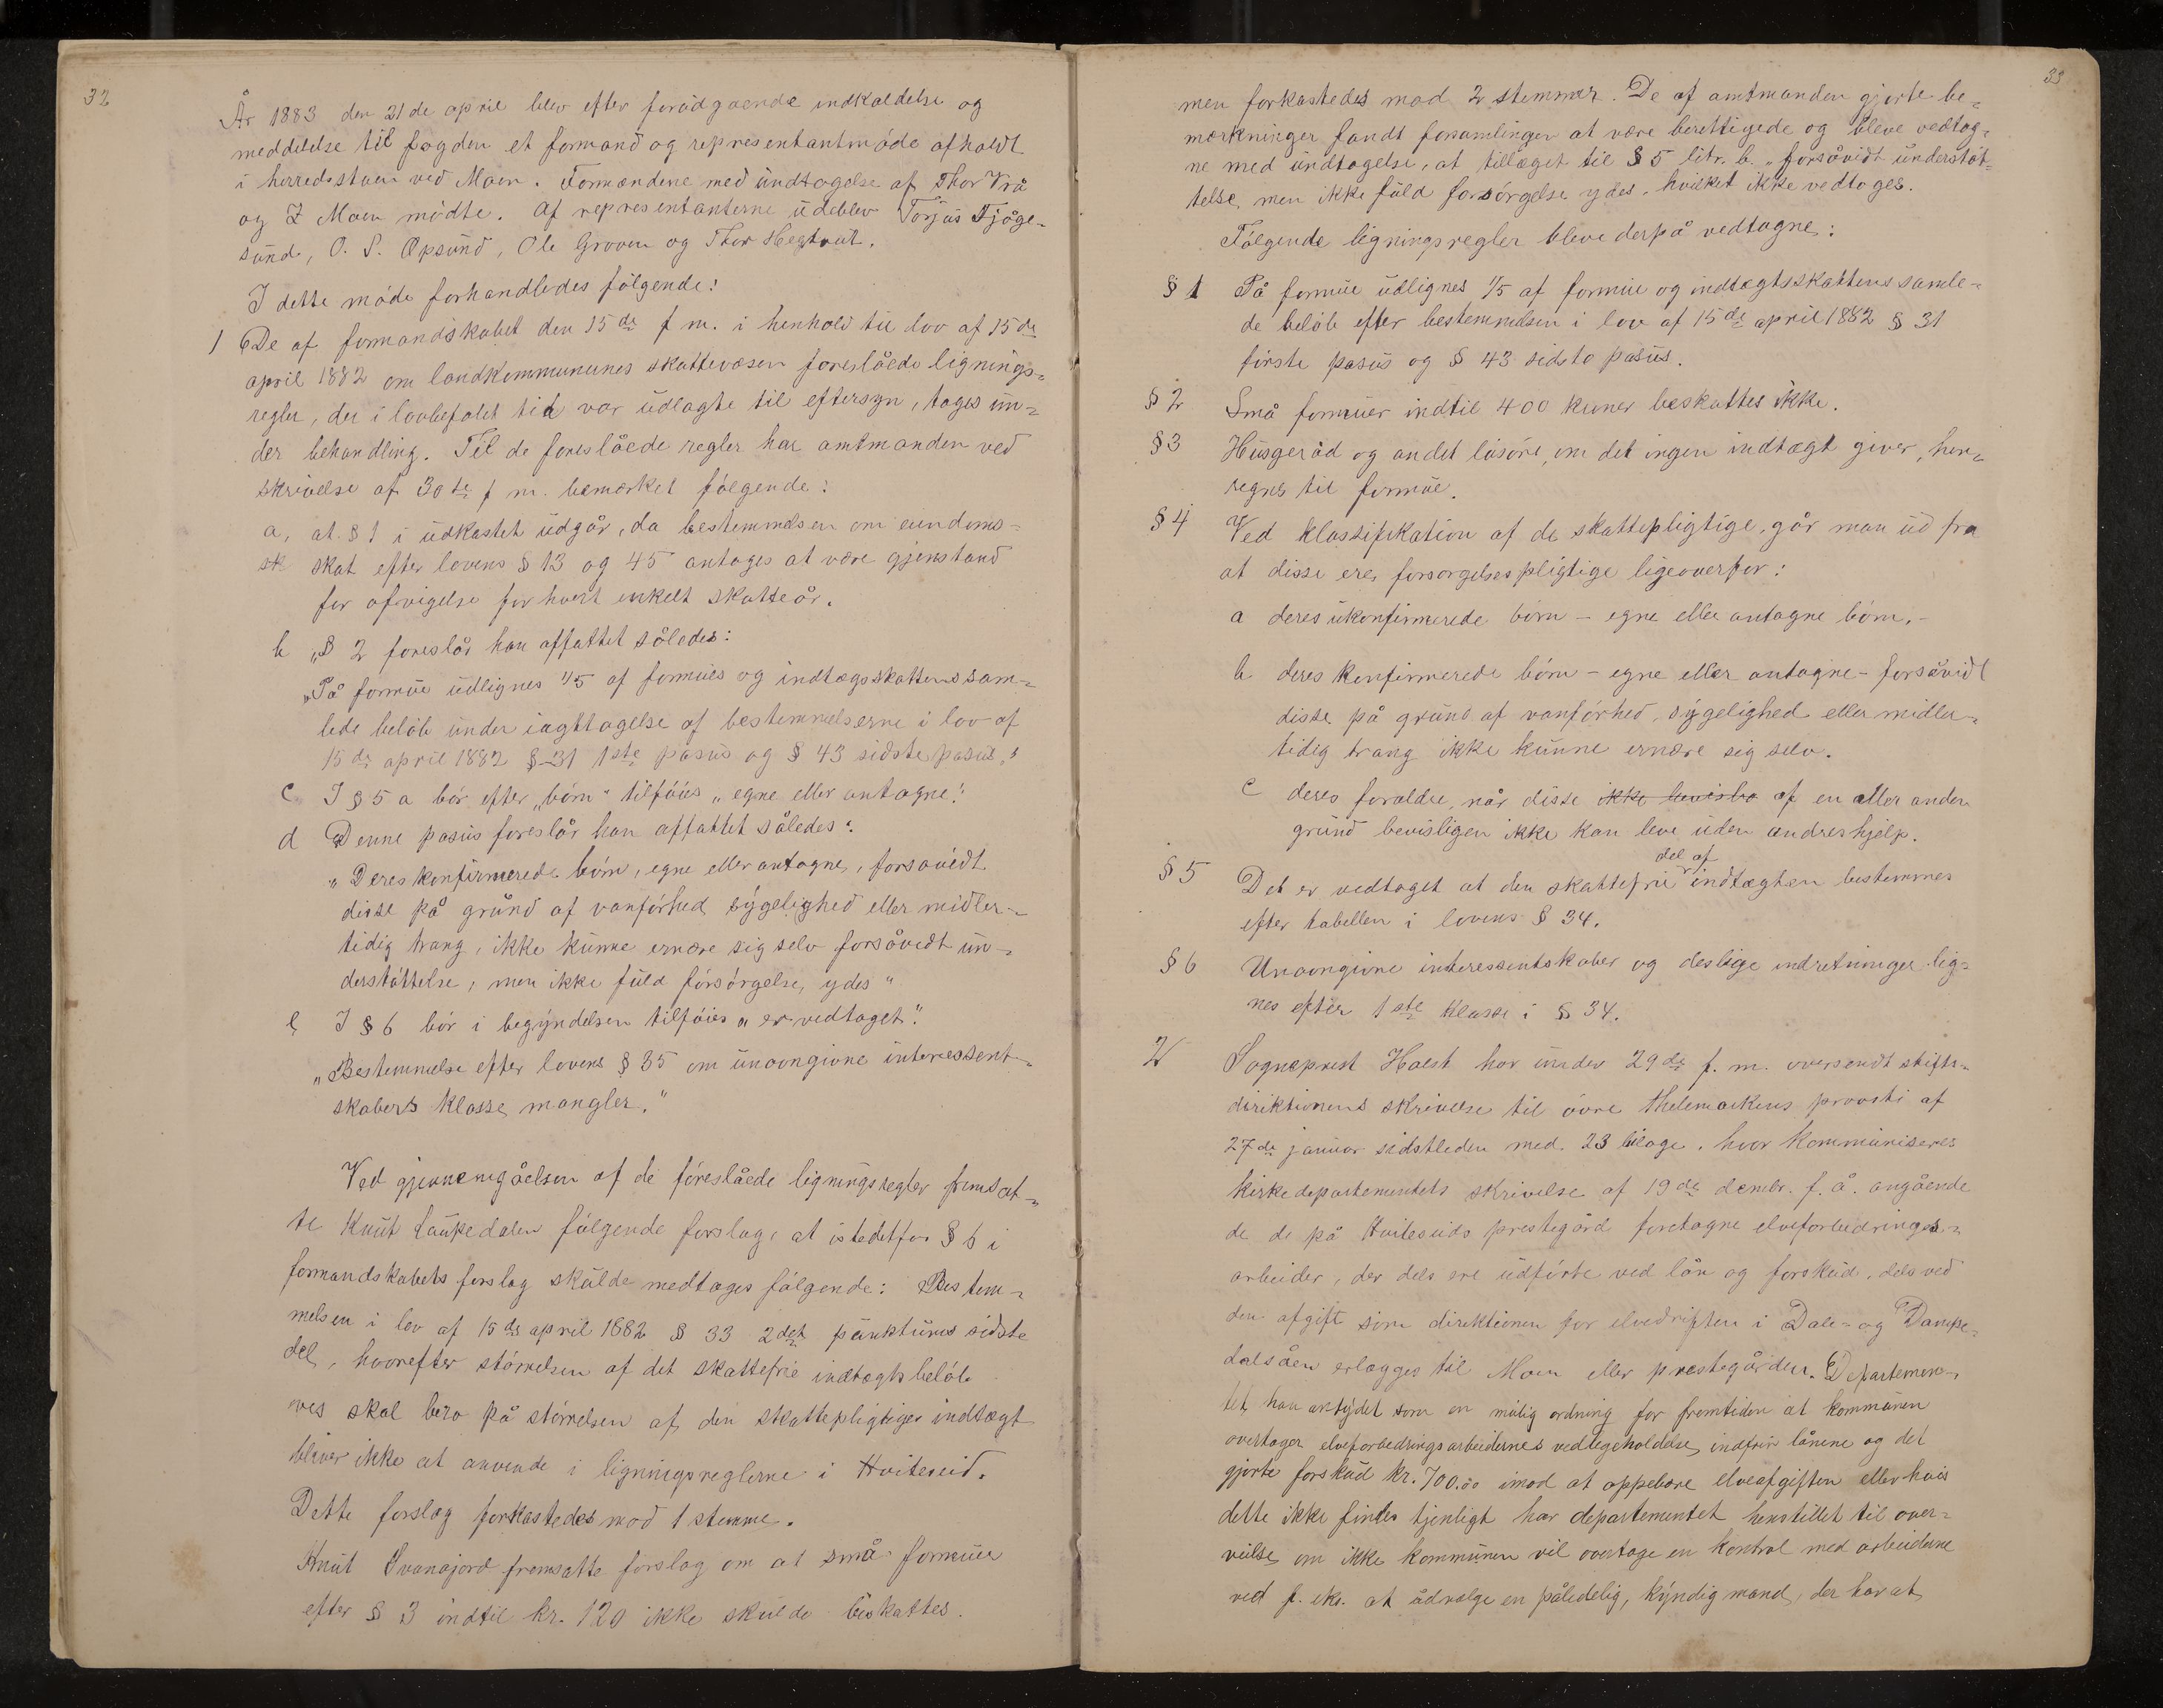 32
År 1883 den 21de april blev efter forudgaaende indkaldelse og
meddelelse til fogden et formand og representantmöde afholdt
i herredsstuen ved Moen. Formændene med undtagelse af Thor Vrå
og Z Moen mödte. Af representanterne udeblev Torjus Fjåge-
sund, O. S. Opsund, Ole Groven og Thor Hegtveit.
I dette möde forhandledes fölgende:
1 De af formandskabet den 15de f m. i henhold til lov af 15de
april 1882 om landkommunernes skattevæsen foreslåede lignings-
regler, der i lovbefalet tid var udlagte til eftersyn, toges un-
der behandling. Til de foreslåede regler har amtmanden ved
skrivelse af 30te f m. bemærket fölgende:
a, at § 1 i udkastet udgår, da bestemmelsen om eiendoms-
sk skat efter lovens § 13 og 45 antages at være gjenstand
for afvigelse for hvert enkelt skatteår.
b „§ 2 foreslår han affattet således:
„På formue udlignes 1/5 af formues og indtægsskattens sam-
lede belöb under iagttagelse af bestemmelserne i lov af
15de april 1882 § 31 1ste pasus og § 43 sidste pasus."
c I § 5 a bör efter „börn" tilföies „egne eller antagne".
d Denne pasus foreslår han affattet således:
„Deres konfirmerede börn, egne eller antagne, forsavidt
disse på grund af vanförhed sygelighed eller midler-
tidig trang, ikke kunne ernære sig selv forsåvidt un-
derstöttelse, men ikke fuld forsörgelse, ydes"
e I § 6 bör i begyndelsen tilföies „er vedtaget".
„Bestemmelse efter lovens § 35 om unavngivne interessent-
skabers klasse mangler."
Ved gjennemgåelsen af de foreslåede ligningsregler fremsat-
te Knut Laupedalen fölgende forslag, at istedetfor § 6 i
formandskabets forslag skulde medtages fölgende: Bestem-
melsen i lov af 15de april 1882 § 33 2det punktums sidste
del, hvorefter störrelsen af det skattefrie indtægtsbelöb
skal bero på störrelsen af den skattepligtiges indtægt
bliver ikke at anvende i ligningsreglerne i Hviteseid.
Dette forslag forkastedes mod 1 stemme.
Knut Svanajord fremsatte forslag om at små formuer
efter § 3 indtil kr. 120 ikke skulde beskattes.
33
men forkastedes mod 2 stemmer. De af amtmanden gjorte be-
mærkninger fandt forsamlingen at være berettigede og bleve vedtag-
ne med undtagelse, at tillæget til § 5 litr. b. „forsåvidt understöt-
telse, men ikke fuld forsörgelse ydes, hvilket ikke vedtoges.
Fölgende ligningsregler bleve derpå vedtagne:
§ 1 På formue udlignes 1/5 af formue og indtægtsskattens samle-
de belöb efter bestemmelsen i lov af 15de april 1882 § 31
förste pasus og § 43 sidste pasus.
§ 2 Små formuer indtil 400 kroner beskattes ikke.
§ 3 Husgeråd og andet lösöre, om det ingen indtægt giver, hen-
regnes til formue.
§ 4 Ved klassifikation af de skattepligtige, går man ud fra
at disse ere forsorgelsespligtige ligeoverfor:
a deres ukonfirmerede börn – egne eller antagne börn. –
b deres konfirmerede börn – egne eller antagne – forsåvidt
disse på grund af vanförhed, sygelighed eller midler-
tidig trang ikke kunne ernære sig selv.
c deres forældre, når disse ikke bevislig af en eller anden
grund bevisligen ikke kan leve uden andres hjelp.
del af
§ 5 Det er vedtaget at den skattefrie indtægten bestemmes
efter tabellen i lovens § 34.
§ 6 Unavngivne interessentskaber og deslige indretninger lig-
nes efter 1ste klasse i § 34.
2 Sogneprest Holst har under 29de f. m. oversendt stifts-
direktionens skrivelse til övre Thelemarkens provsti af
27de januar sidstleden med 23 bilage, hvor kommuniseres
kirkedepartementets skrivelse af 19de decmbr. f. å. angående
de de på Hviteseids prestegård foretagne elveforbedrings-
arbeider, der dels ere udförte ved lån og forskud, dels ved
den afgift som direktionen for elvedriften i Dale- og Dampe-
dalsåen erlægges til Moen eller prestegården. Departemen-
tet har antydet som en mulig ordning for fremtiden at kommunen
overtager elveforbedringsarbeidernes vedligeholdelse, indfrir lånene og det
gjorte forskud kr. 700.00 imod at oppebære elveafgiften eller hvis
dette ikke findes tjenligt har departementet henstillet til over-
veielse om ikke kommunen vil overtage en kontrol med arbeiderne
ved f. eks. at udvælge en pålidelig, kyndig mand, der har at